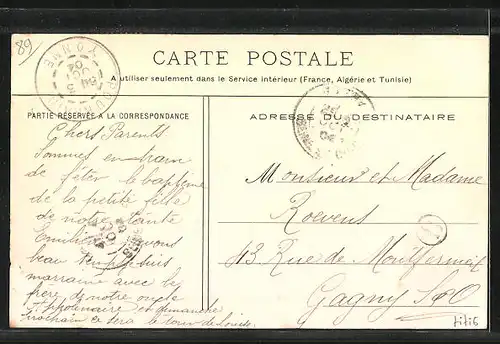 89
YONNE
CARTE POSTALE
A utiliser seulement dans le Service intérieur (France, Algérie et Tunisie)
PARTIE RÉSERVÉE A LA CORRESPONDANCE
ADRESSE DU DESTINATAIRE
Chers Parents
Sommes en train
de fêter le baptême
de la petite fille
de notre tante
Emilie
beau temps
marraine avec le
frère de notre oncle
et dimanche
prochain ce sera le tour de Louis.
Monsieur et Madame
Roevens
43 Rue de Montfermeil
Gagny S&O